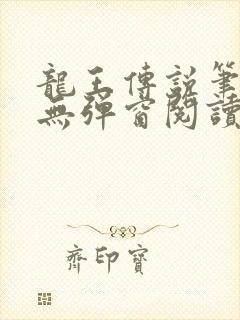 龍王傳說筆
無彈窗閱讀
齊印寶